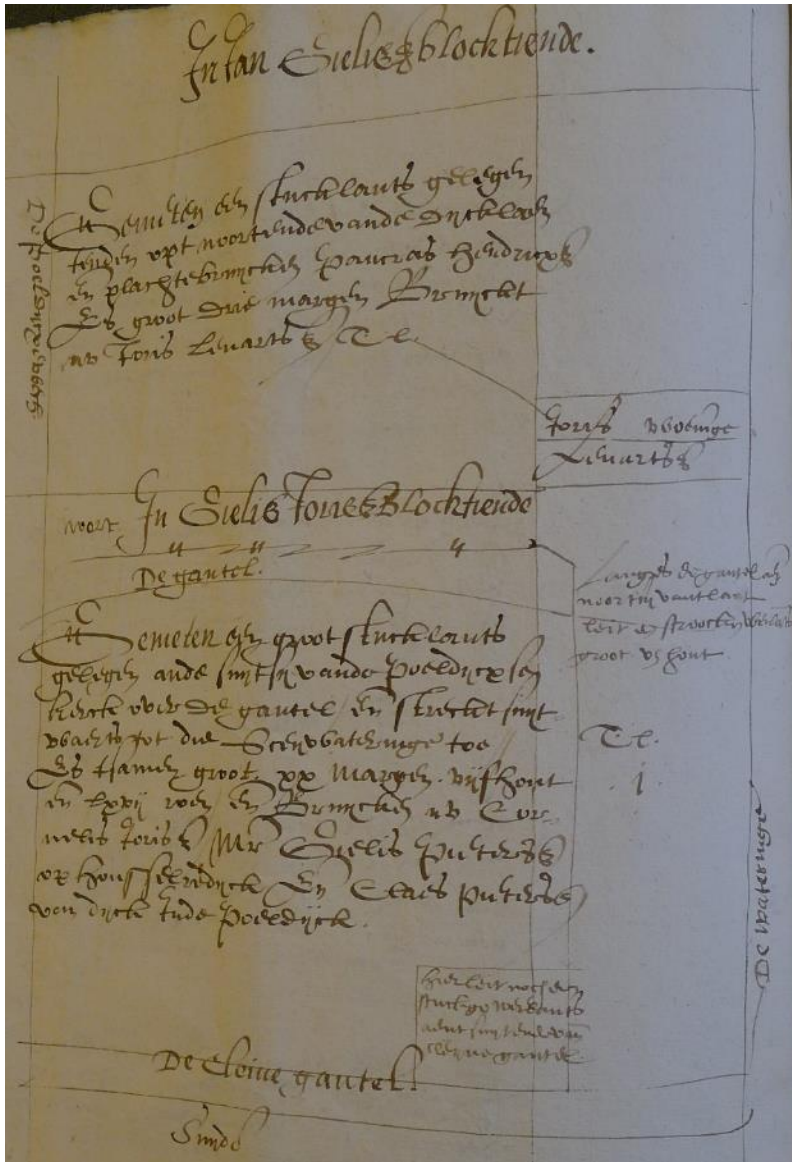 In Jan Gielisz blocktiende.
Gemeten een stuck lants gelegen
tenden opt noortende vande Dyckla
en plachte bruycken Pancras Hendricxz
Es groot drie margen Bruyckt
nv Joris Lenartsz T l.
Joris wooninge
Lenartsz
noort
In Gielis Jorisz Blocktiende
De gantel.
Langes de gantel an
noortzy vant lant
leit een stroocken
groot vj hont
Gemeten een groot stuck lants
gelegen ande suytsy vande Poeldyckssen
kerck over de gantel en streckt suyt
waerts tot die wateringe toe
Es tsamen groot xx margen vijf hont
en lxxij roen en Bruycken nv Cor
nelis Jorisz Mr Gielis Pietersz
op honsselredyck En Claes Pietersz
van dyck inde Poeldyck.
T l.
j
De Wateringe
hier leit noch een
stuckgen
aent suytende van
cleyne gantel
De Cleine gantel.
Suude